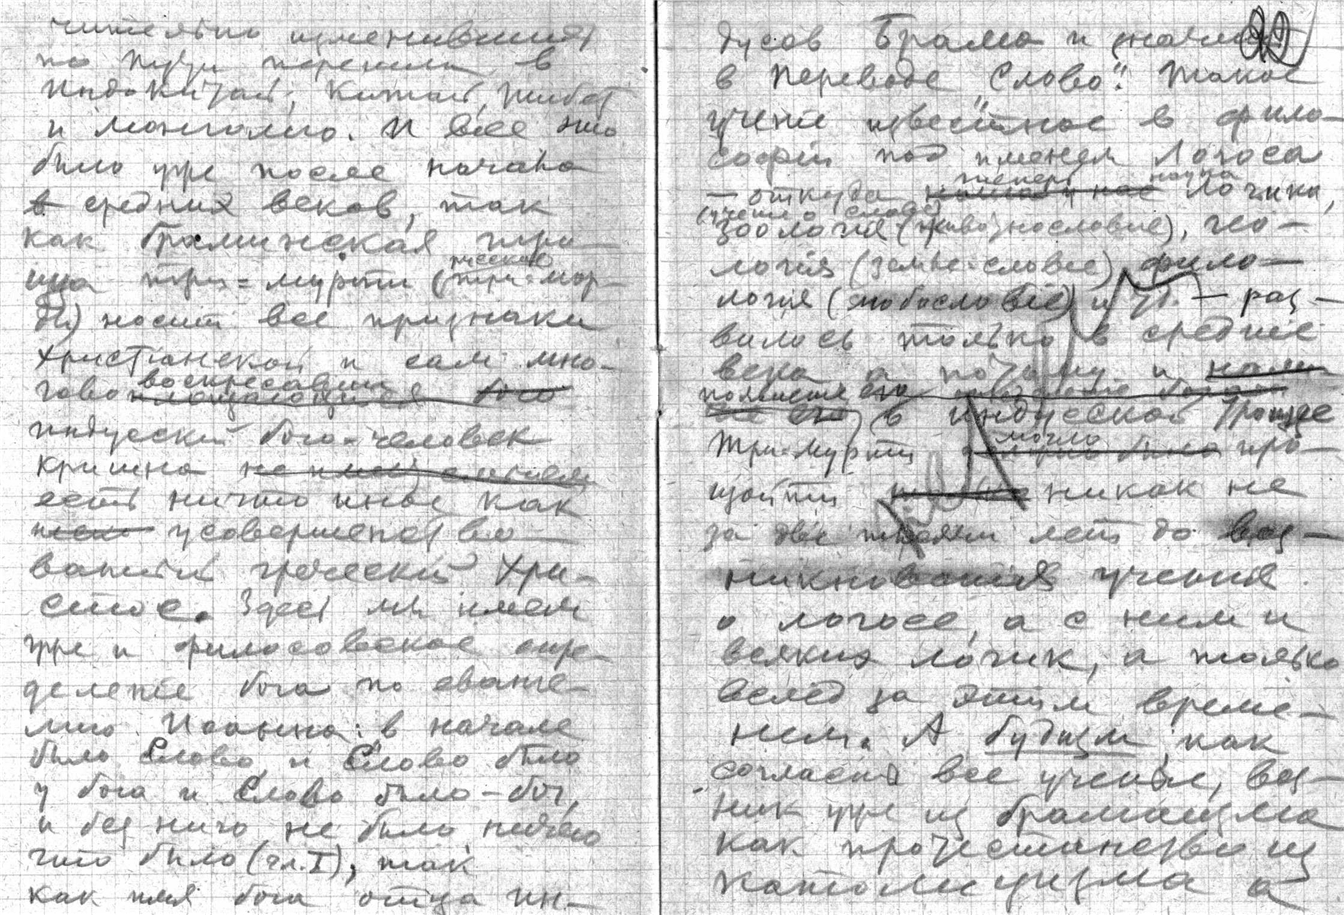 чительно изменившись
по пути перешла в
Индокитай, Китай, Тибет
и Монголию. И все это
было уже после начала
в средних веков, так
как браминская трои-
ца три-мурти (русское три-мор-
ды) носит все признаки
христіанской и сам мно-
гово воскресавший
индусский бого-человек
Кришна
есть ничто иное как
усовершенствово-
ванный греческий Хри-
стос. Здесь мы имеем
уже и философское опре-
деление бога по еванге-
лию Иоанна: в начале
было Слово, и Слово было
у бога и Слово было-бог,
и без него не было ничего
что было (гл. I), так
как имя бога отца ин-
дусов Брама и значит
в переводе "Слово". Такое
учение известное в фило-
софии под именем Логоса
— откуда теперь наука логика,
(учение о слове)
зоология (животнословие), гео-
логия (земле-словие), фило-
логия (любословие) и т.д. — раз-
вилось только в средние
века а потому и
появиться его
в индусской Троице
Три-мурти могло про-
изойти никак не
за две тысячи лет до воз-
никновения учения
о логосе, а с ним и
всяких логик, а только
вслед за этим време-
нем. А буддизм, как
согласны все ученые, воз-
ник уже из браманизма
как протестанство из
католицизма а